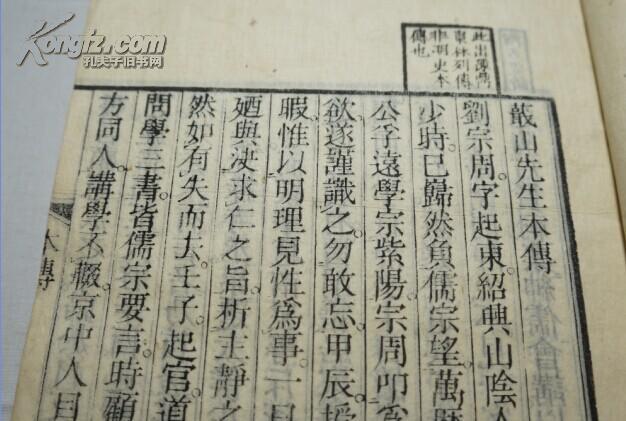 Kongfz.com
孔夫子旧书网
此出薄門
東林列傳
非明史本
傳也
蕺山先生本傳
劉宗周字起東紹興山陰人
少時已巋然負儒宗望萬曆
公孚遠學宗紫陽宗周叩爲
欲遂謹識之勿敢忘甲辰授
暇惟以明理見性爲事一日
廼與決求仁之旨析主靜之
然如有失而去壬子起官道
問學三書皆儒宗要言時顧
方同人講學不輟京中人目
本傳